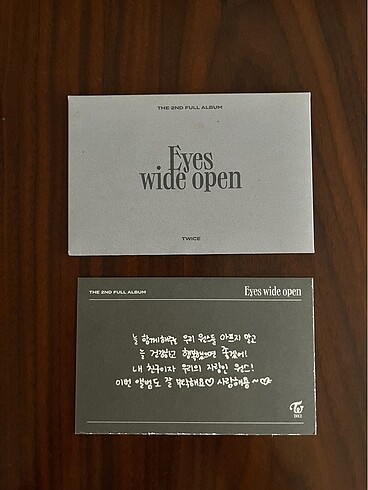 THE 2ND FULL ALBUM
Eyes
wide open
TWICE
THE 2ND FULL ALBUM
Eyes wide open
늘 함께해주는 우리 원스들 아프지 않고
늘 건강하고 행복했으면 좋겠어!
내 친구이자 우리의 자랑인 원스!
이번 앨범도 잘 부탁해요♡ 사랑해용~
TWICE